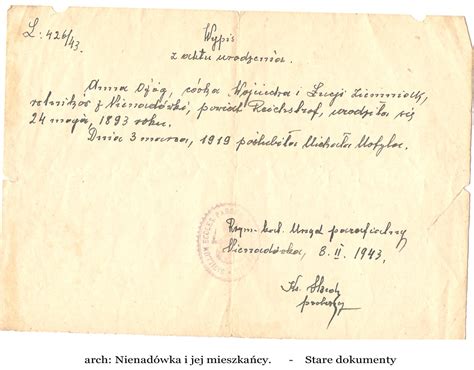 L: 426/43.
Wypis
z aktu urodzenia.
Anna Ożóg, córka Wojciecha i Łucji Ziemniak,
rolników z Nienadówki, powiat Reichshof, urodziła się
24 maja, 1893 roku.
Dnia 3 marca, 1919 poślubiła Michała Motyla.
Rzym. kat. Urząd parafialny
Nienadówka, 8. II. 1943.
Ks.
proboszcz
arch: Nienadówka i jej mieszkańcy. - Stare dokumenty